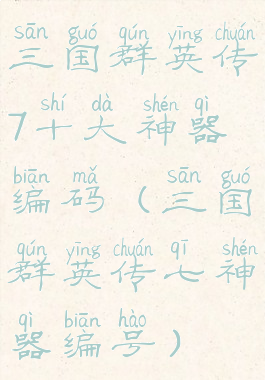 sān guó qún yīng chuán
三国群英传
shí dà shén qì
7十大神器
biān mǎ sān guó
编码（三国
qún yīng chuán qī shén
群英传七神
qì biān hào
器编号）